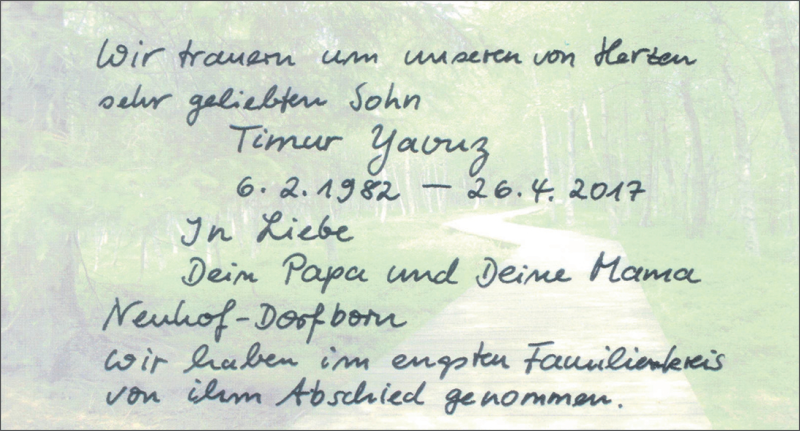 Wir trauern um unseren von Herzen
sehr geliebten Sohn
Timur Yavuz
6.2.1982 — 26.4.2017
In Liebe
Dein Papa und Deine Mama
Neuhof-Dorfborn
Wir haben im engsten Familienkreis
von ihm Abschied genommen.